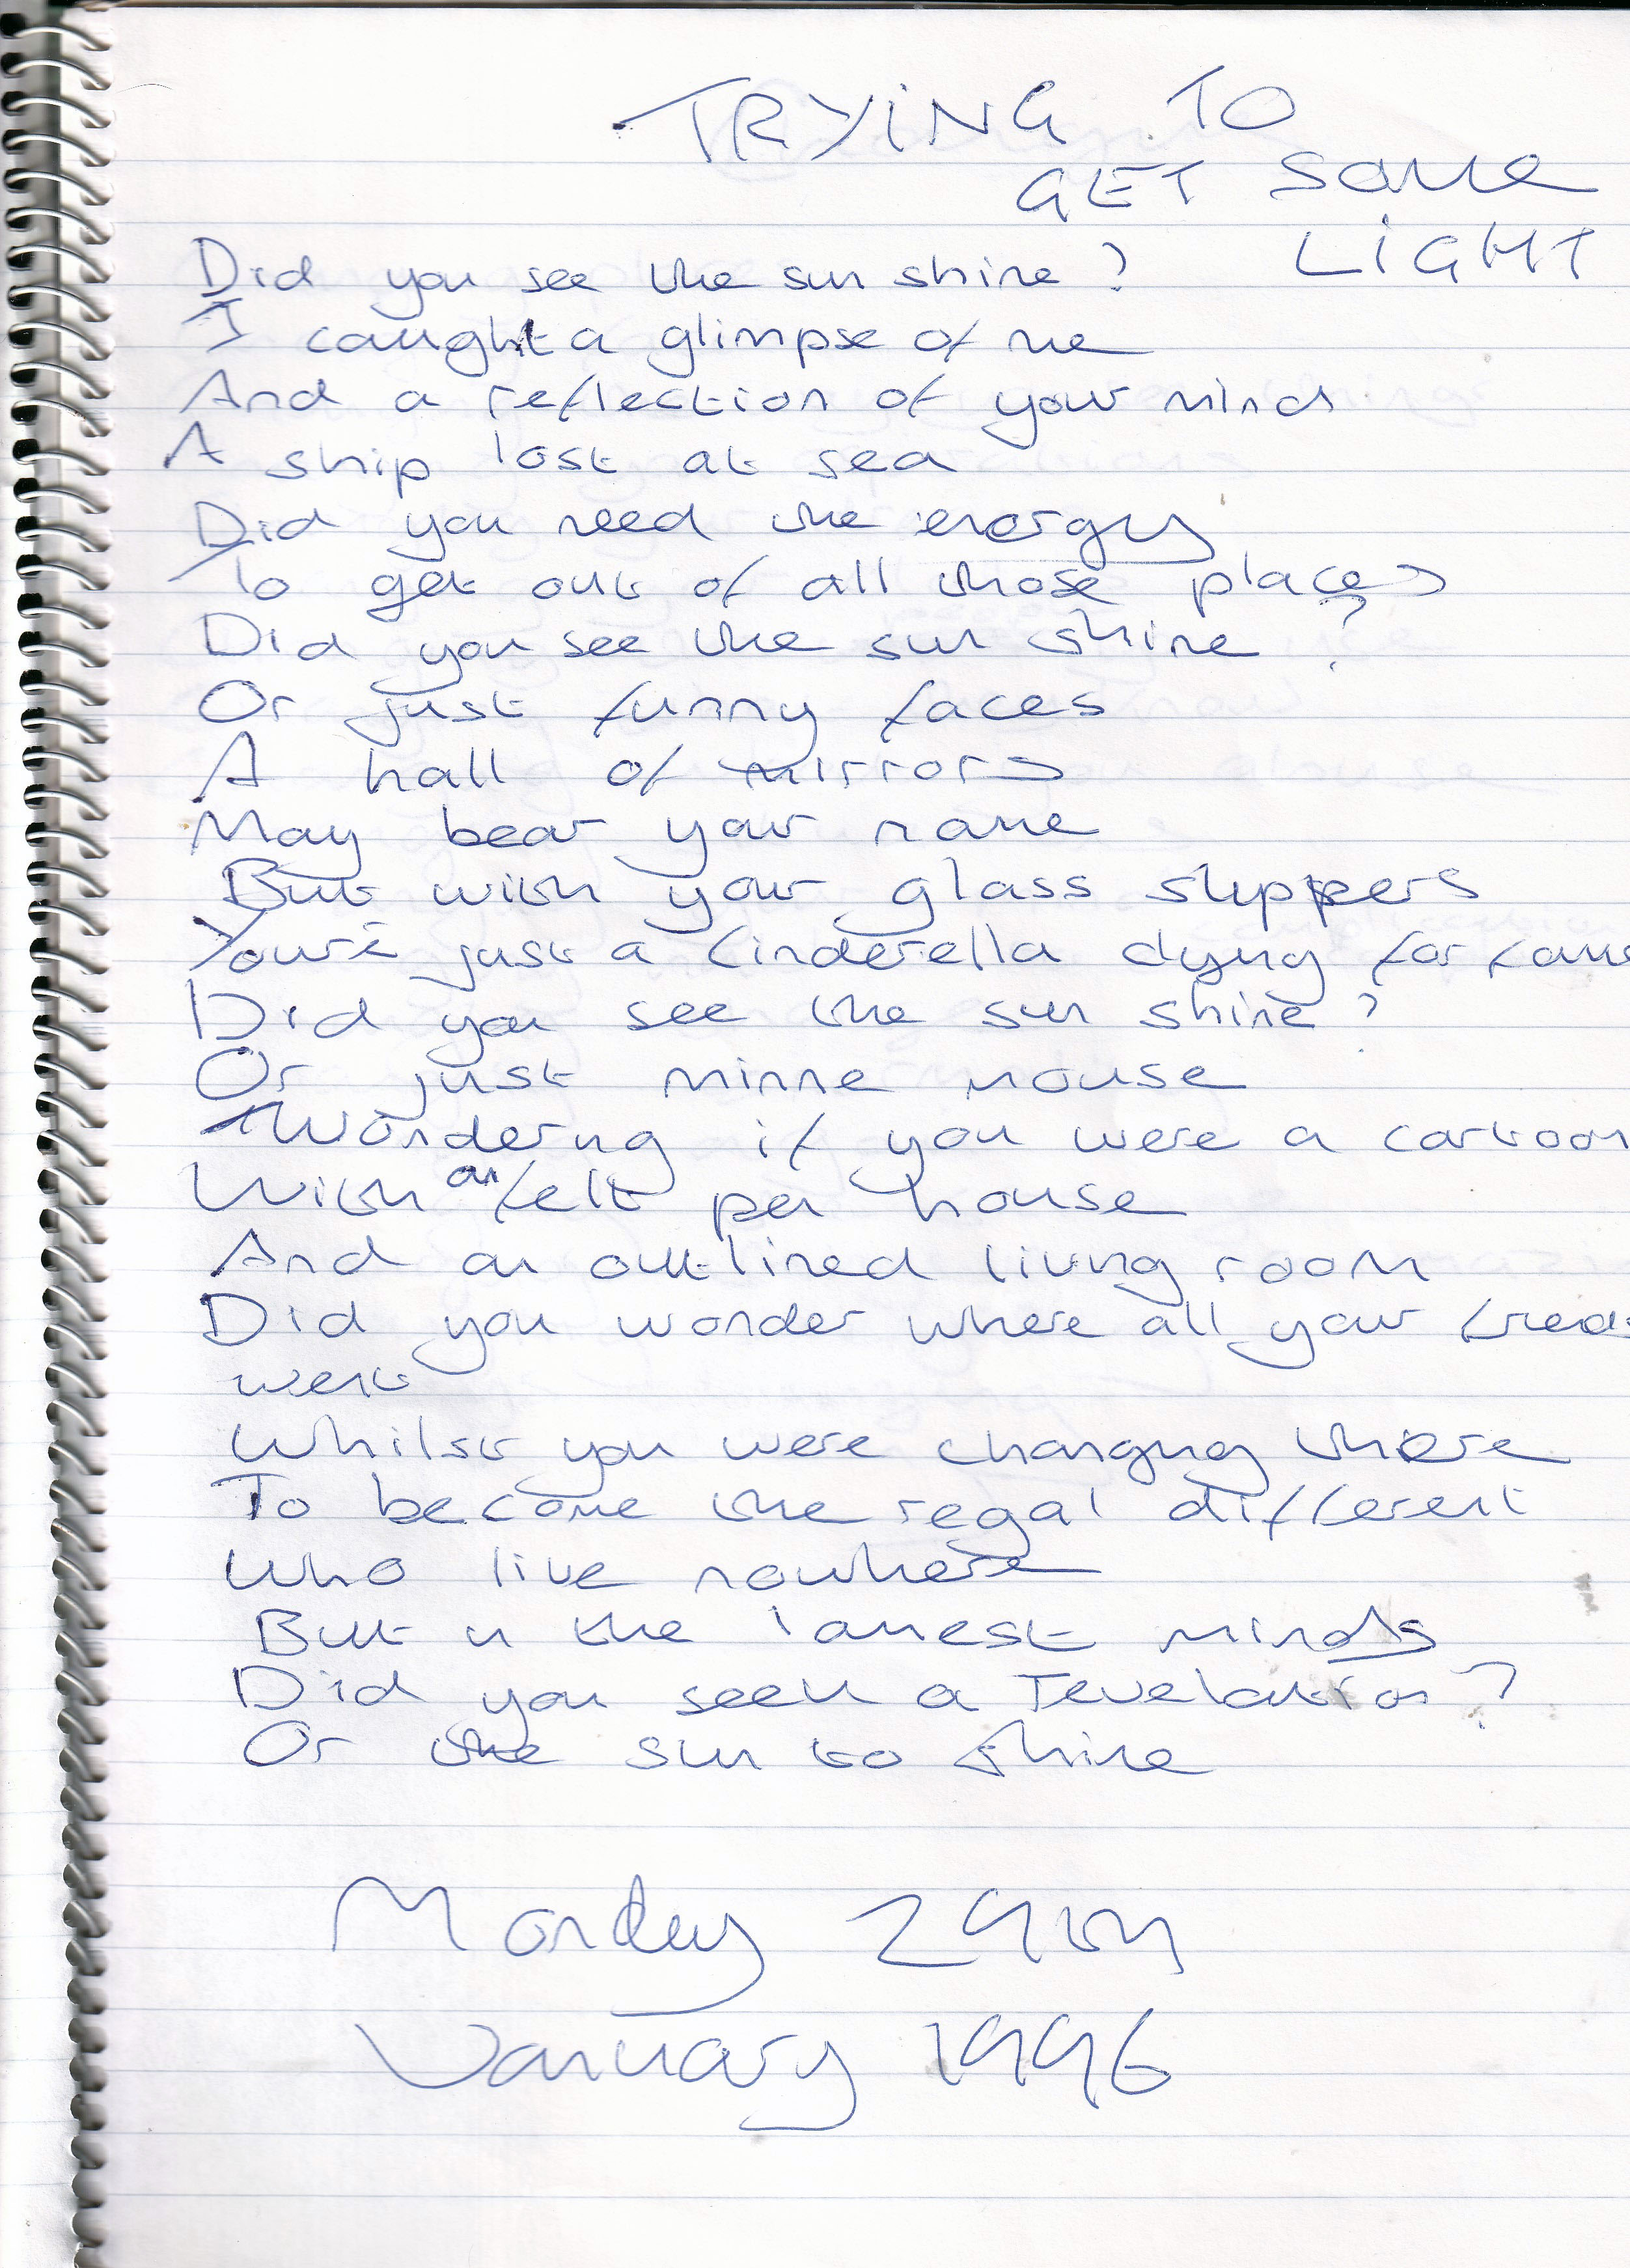 TRYING TO
GET SOME
LIGHT
Did you see the sun shine?
I caught a glimpse of me
And a reflection of your mind
A ship lost at sea
Did you need the energy
To get out of all those places
Did you see the sun shine?
Or just funny faces
A hall of mirrors
May bear your name
But with your glass slippers
Your'e just a Cinderella dying for fame
Did you see the sun shine?
Or just minne mouse
Wondering if you were a cartoon
With an felt pen house
And an outlined living room
Did you wonder where all your
went
Whilst you were changing there
To become the regal different
Who live nowhere
But in the lamest minds
Did you seek a revelation?
Or the sun to shine
Monday 29th
January 1996